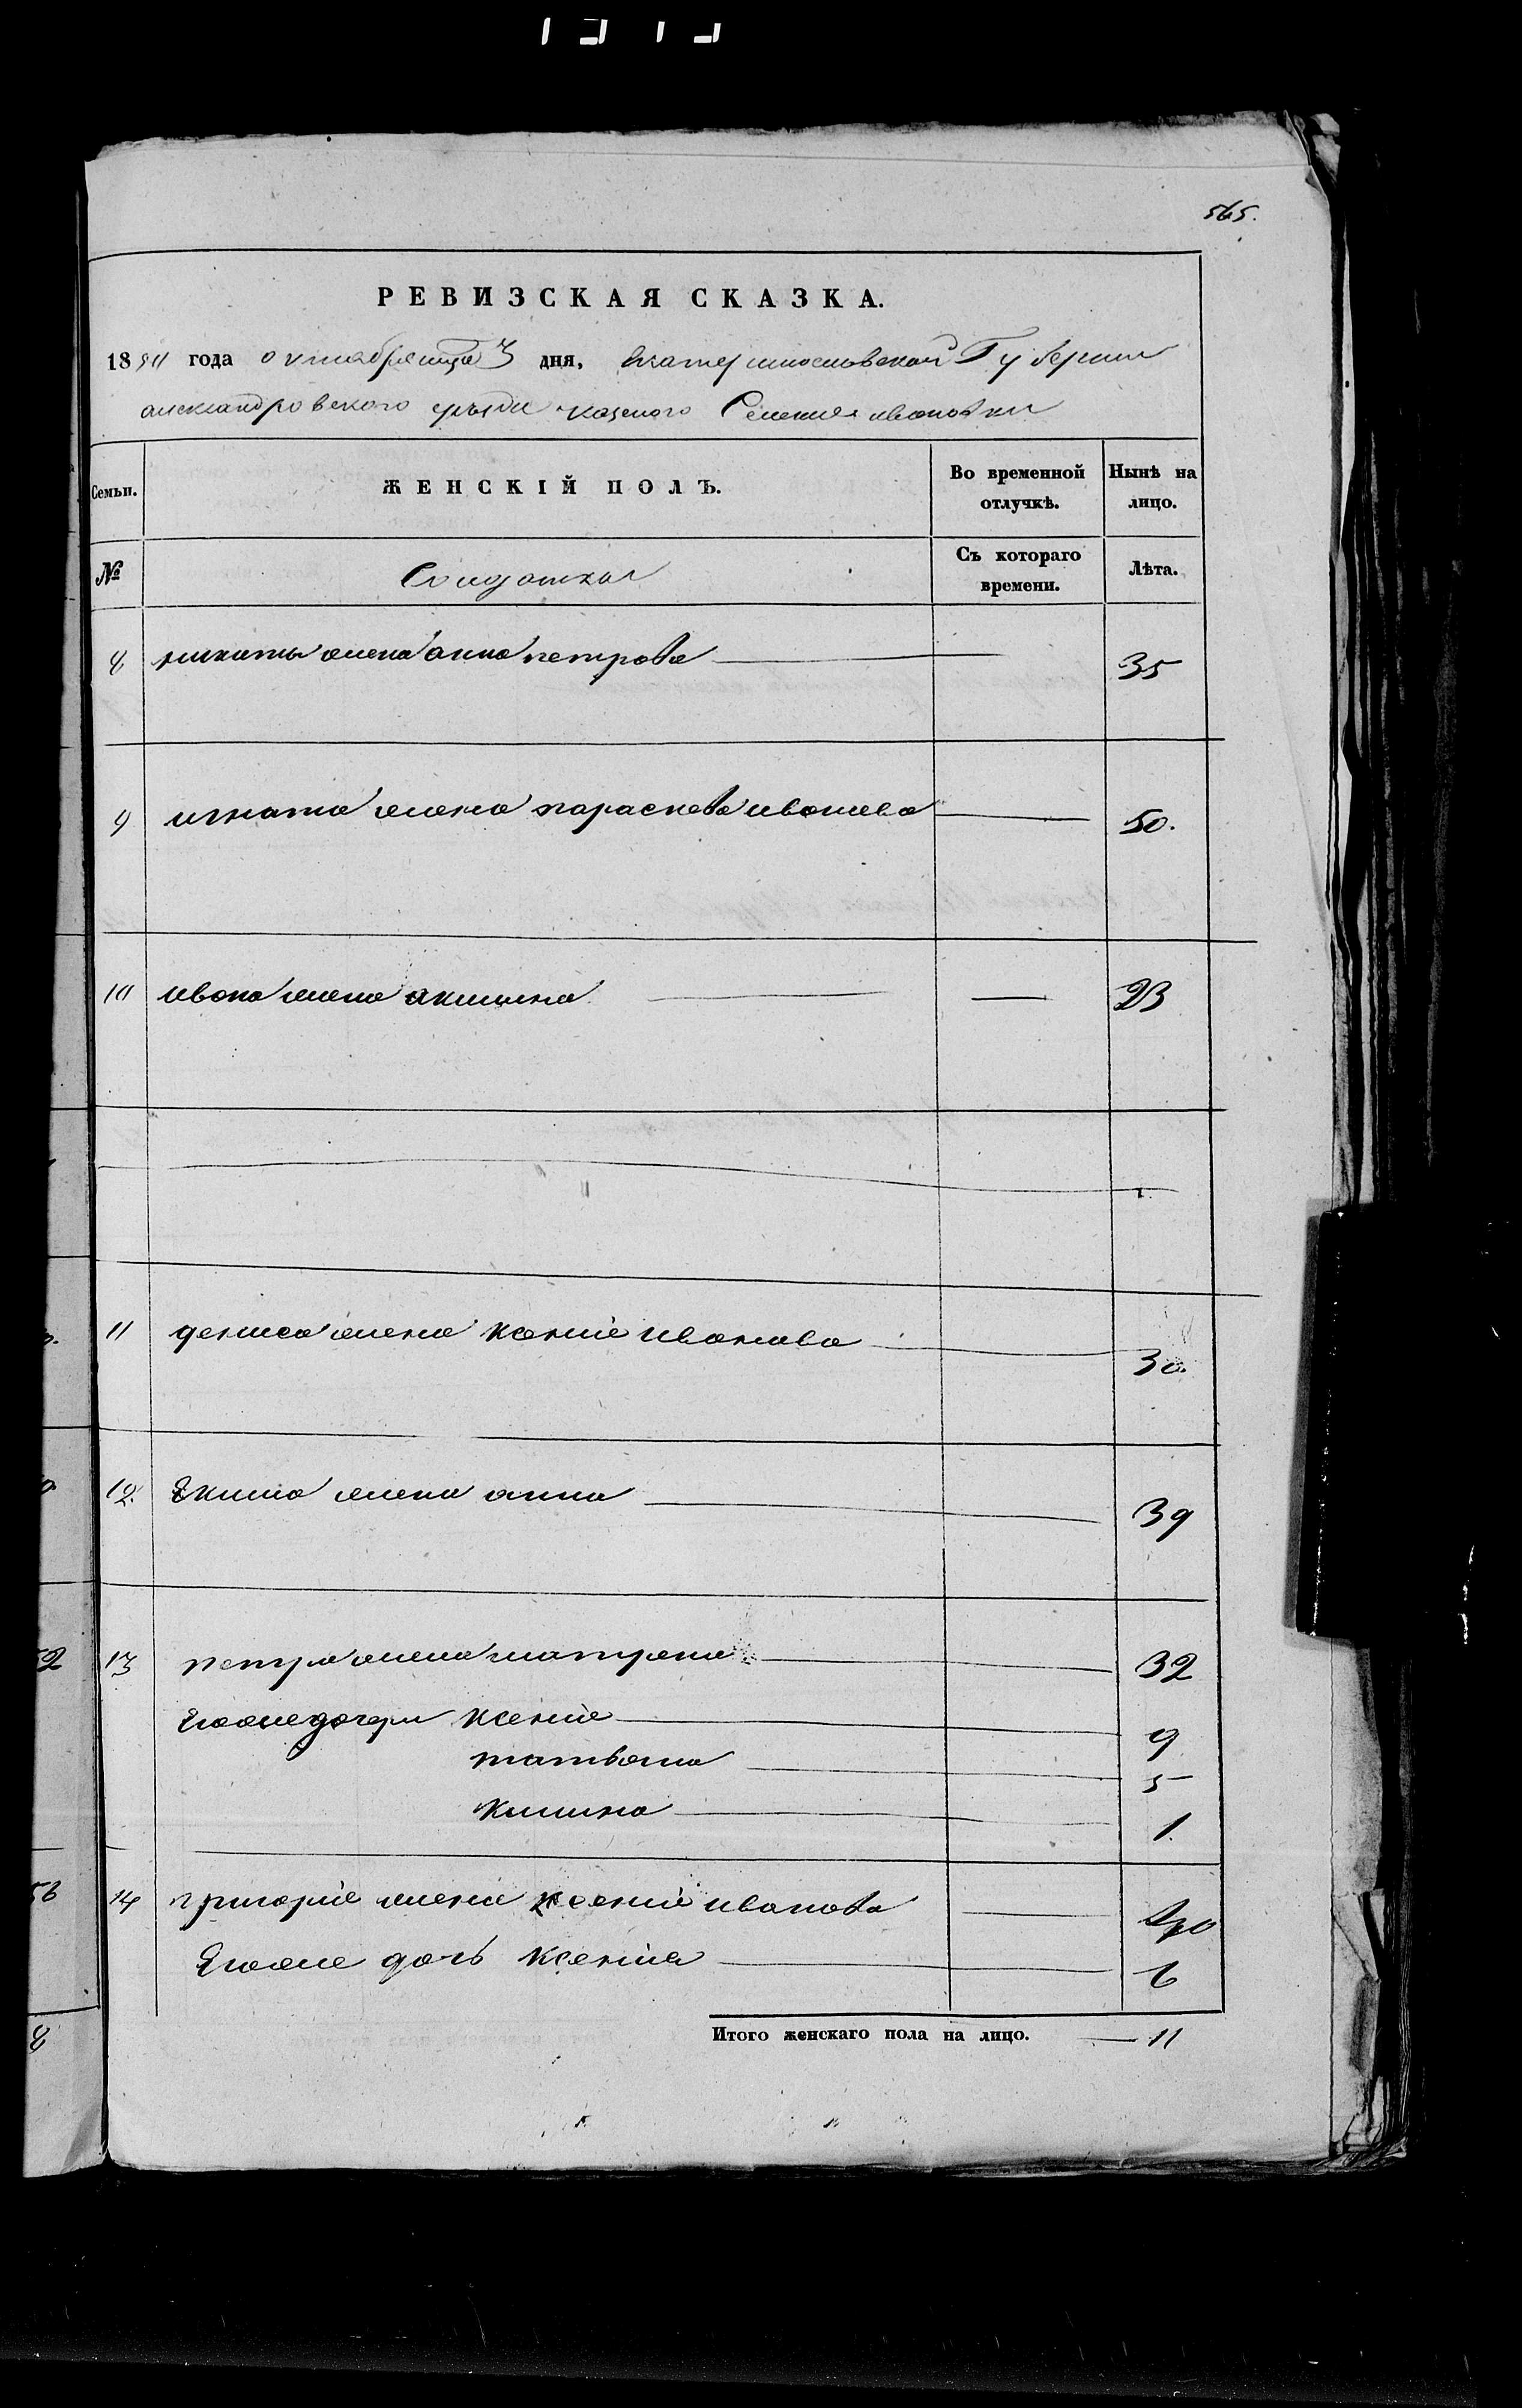 565.
РЕВИЗСКАЯ СКАЗКА.
1850 года октября месяца 3 дня, Екатеринославской Губернии
александровского уезда казеного Селения ивановки
Семьи. ЖЕНСКІЙ ПОЛЪ. Во временной отлучкѣ. Нынѣ на лицо.
№ Солдатки Съ котораго времени. Лѣта.
8 никиты жена анна петрова 35
9 игната жена параскева иванова 50.
10 ивана жена акилина 23
11 дениса жена ксения иванова 30.
12. Екима жена анна 39
13 петра жена матрена 32
Егоже дочери ксения 9
татьяна 5
1.
14 григория жена ксения иванова 40
Егоже дочь ксения 6
Итого женскаго пола на лицо. 11
52
56
8